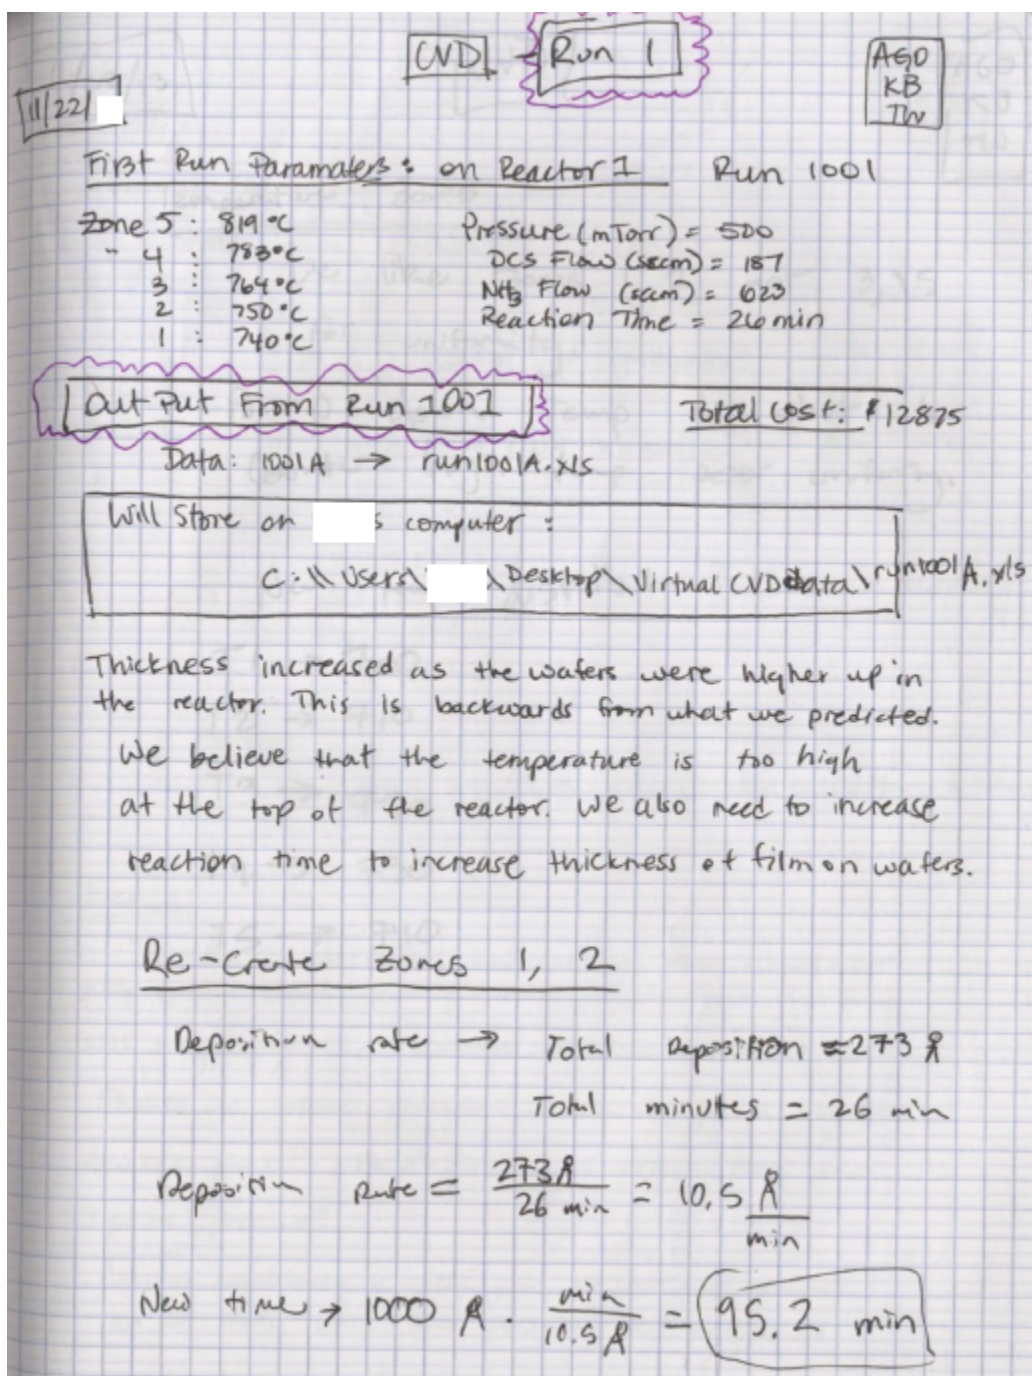 CVD - Run 1
AGD
KB
TW
11/22/
First Run Paramaters: on Reactor 1 Run 1001
Zone 5 : 819°C Pressure (mTorr) = 500
" 4 : 783°C DCS Flow (sccm) = 187
3 : 764°C NH3 Flow (sccm) = 623
2 : 750°C Reaction Time = 26 min
1 : 740°C
Out Put From Run 1001 Total Cost: $12875
Data: 1001A → run1001A.xls
Will Store on s computer :
C:\\Users\ \Desktop\Virtual CVD data\run1001A.xls
Thickness increased as the wafers were higher up in
the reactor. This is backwards from what we predicted.
We believe that the temperature is too high
at the top of the reactor. We also need to increase
reaction time to increase thickness of film on wafers.
Re-Create Zones 1, 2
Deposition rate → Total Deposition = 273 Å
Total minutes = 26 min
Deposition Rate = 273 Å / 26 min = 10.5 Å / min
New time → 1000 Å · min / 10.5 Å = 95.2 min